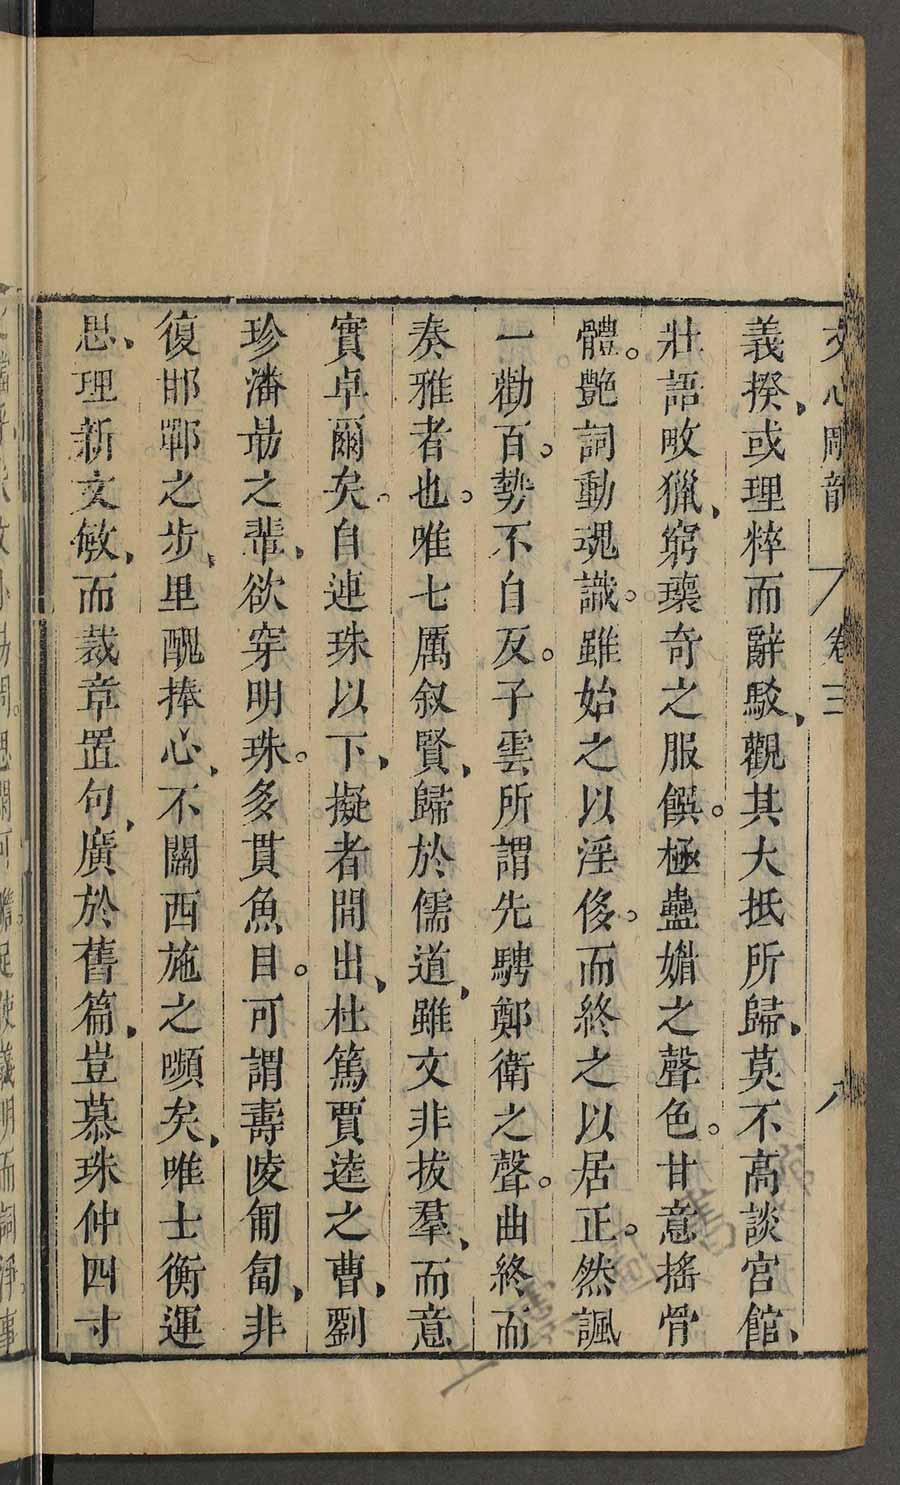 文心雕龍 卷三 八
義揆、或理粹而辭駁、觀其大抵所歸、莫不高談宮館、
壯語畋獵、窮瓌奇之服饌。極蠱媚之聲色。甘意搖骨
體。艷詞動魂識。雖始之以淫侈。而終之以居正。然諷
一勸百。勢不自反。子雲所謂先騁鄭衛之聲。曲終而
奏雅者也。唯七厲叙賢、歸於儒道、雖文非拔羣、而意
實卓爾矣。自連珠以下、擬者間出、杜篤賈逵之曹、劉
珍潘勗之輩、欲穿明珠。多貫魚目。可謂壽陵匍匐、非
復邯鄲之步、里醜捧心、不關西施之顰矣、唯士衡運
思、理新文敏、而裁章置句、廣於舊篇、豈慕珠仲四寸